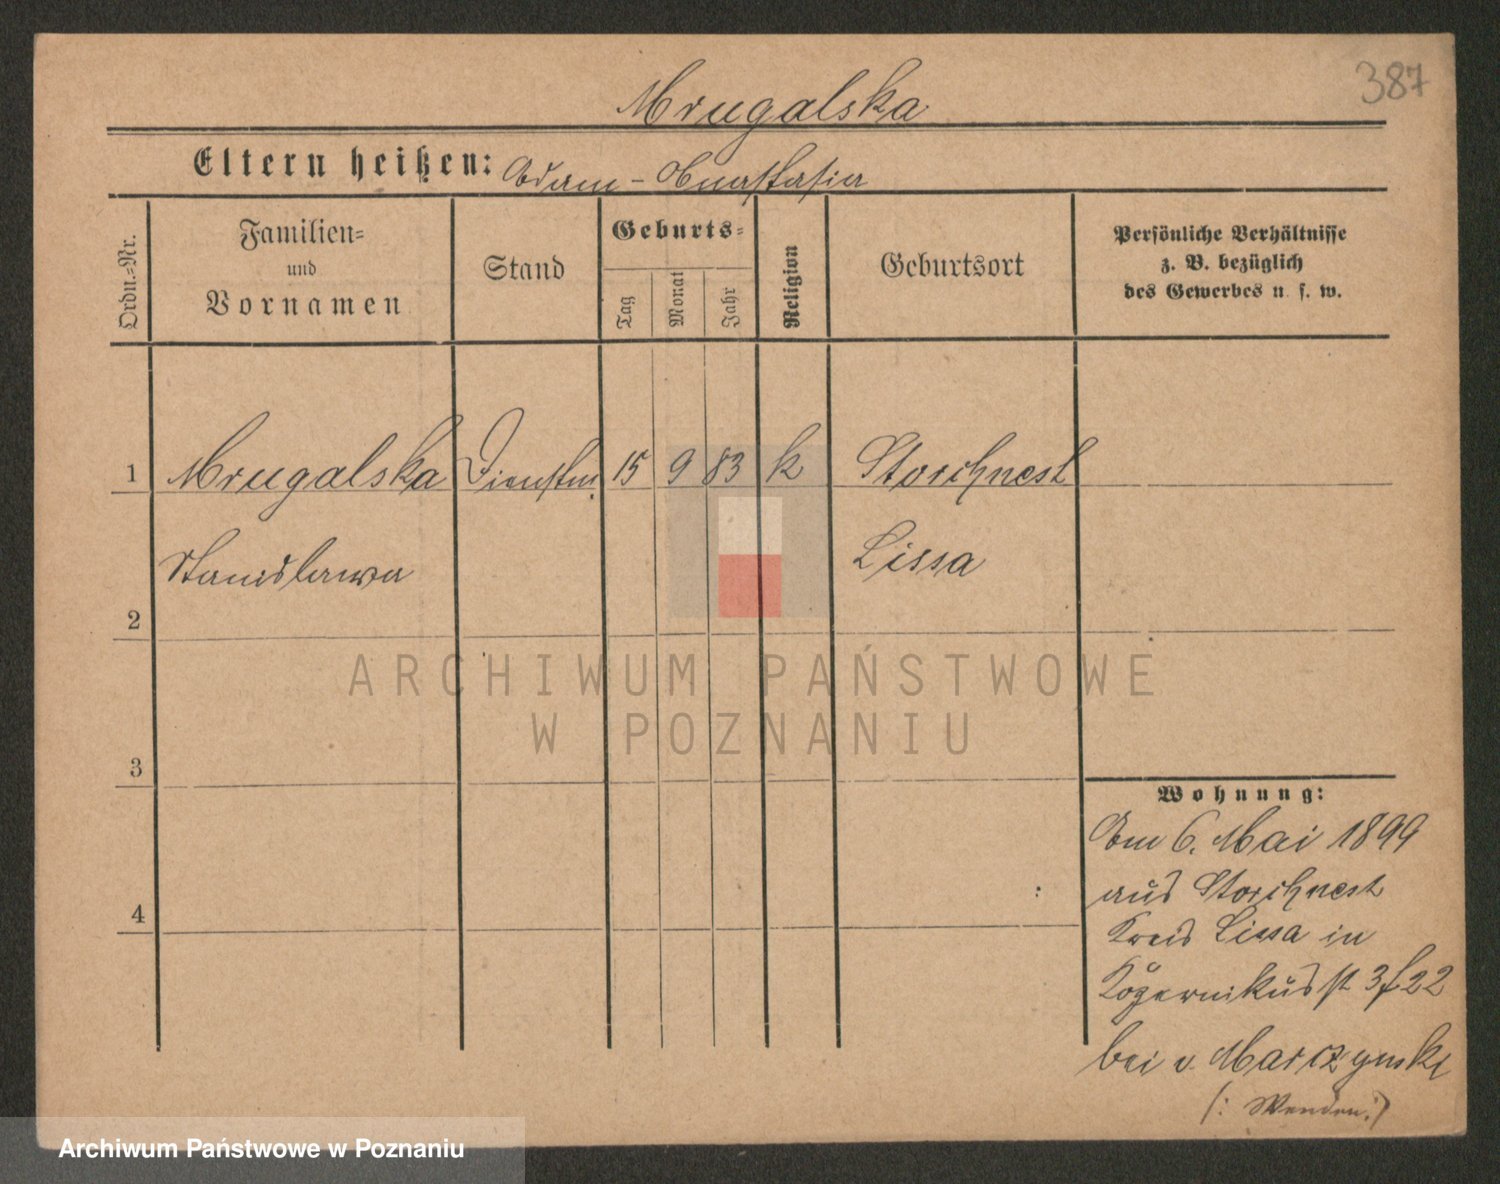 387
Mrugalska
Eltern heißen: Adam - Anastasia
Ordn.-Nr.
Familien-
und
Vornamen
Stand
Geburts-
Tag
Monat
Jahr
Religion
Geburtsort
Persönliche Verhältnisse
z. B. bezüglich
des Gewerbes u. s. w.
1 Mrugalska Dienstm. 15 9 83 k Storchnest
Stanislawa Lissa
2
3
4
Wohnung:
Am 6. Mai 1899
aus Storchnest
Kreis Lissa in
st 3/22
bei v. Marczynski
(: Wenden :)
ARCHIWUM PAŃSTWOWE
W POZNANIU
Archiwum Państwowe w Poznaniu